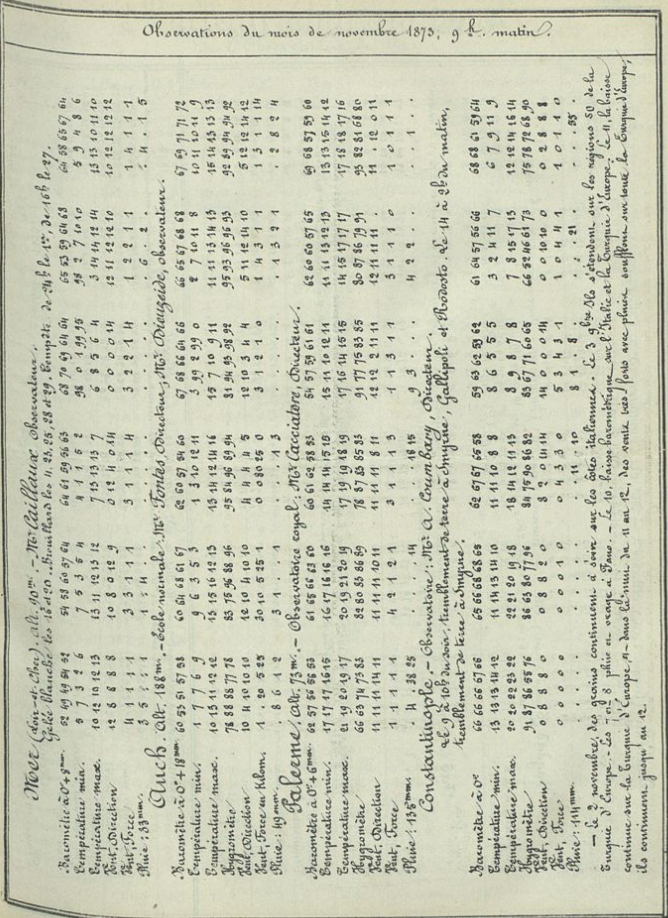 Observations du mois de novembre 1873, 9 h. matin.
Mer (Loir-et-Cher). alt. 90m. – Mr Cailleux observateur.
Gelée blanche les 16 et 20. – Brouillard les 4, 23, 25, 28 et 29. Tempête de 24h le 1er, de 16h le 27.
Baromètre à 0°+8mm. 52 49 49 54 52 54 58 60 57 64 64 61 59 56 63 68 70 69 64 64 65 53 59 64 63 64 58 65 67 64
Température min. 5 7 3 2 6 7 5 3 5 4 4 1 1 5 2 98 0 1 99 95 98 2 7 10 10 5 9 4 8 6
Température max. 10 12 10 12 13 13 11 12 13 12 7 13 13 13 7 6 8 5 6 4 3 14 14 12 14 13 13 10 11 10
Vent, Direction 12 8 8 8 8 10 8 0 12 9 0 12 4 0 14 0 0 0 0 14 12 11 12 12 10 10 12 12 12 12
Vent, Force 4 1 1 1 1 3 3 1 1 1 1 1 1 1 3 3 2 2 1 4 1 2 2 1 1 1 4 1 1 1
Pluie: 33mm.
Auch alt. 188m. – École normale. Mr Fontès, Directeur, Mr Dieuzeide, observateur.
Baromètre à 0°+18mm. 60 53 51 57 58 60 64 68 61 67 62 60 57 54 60 67 68 66 64 66 66 65 67 68 68 67 69 71 71 72
Température min. 1 7 7 6 9 9 6 3 5 3 1 3 10 12 11 3 99 2 99 0 2 7 10 11 8 10 11 10 11 9
Température max. 10 13 11 12 12 13 15 16 12 13 13 14 12 14 16 15 7 10 9 11 11 13 14 13 13 15 13 13 13
Hygromètre 78 88 88 77 78 83 75 96 88 96 95 84 96 89 94 81 94 93 98 92 95 93 96 96 93 92 89 94 94 92
Vent, Direction 10 4 10 10 10 12 10 4 10 10 4 4 4 4 5 12 10 3 4 4 5 11 12 14 10 5 12 12 14 12
Vent, Force en Kilom.
Pluie: 49mm.
Palerme (alt. 73m. – Observatoire royal: Mr Cacciatore, Directeur.
Baromètre à 0°+6mm. 62 57 56 56 53 61 65 66 63 60 60 61 62 58 53 54 57 59 61 61 62 60 60 57 65 69 68 57 59 60
Température min. 17 17 17 16 15 16 17 16 16 16 14 14 14 15 15 15 11 10 12 11 11 11 13 12 13 13 13 15 14 12
Température max. 21 19 20 19 17 20 19 21 20 19 17 19 19 18 19 17 16 14 15 15 14 15 17 17 17 17 18 18 17 16
Hygromètre 66 63 74 75 83 82 80 85 86 89 78 87 83 85 83 91 77 75 83 85 80 87 86 79 91 93 82 81 68 80
Vent, Direction 11 11 11 14 11 11 11 11 10 11 11 11 11 8 11 12 12 2 11 11 12 11 11 11 . 11 . 12 0 11
Vent, Force 1 1 1 1 1 4 2 1 2 1 3 1 1 1 3 1 1 3 1 1 3 1 1 1 0 1 0 1 1 1
Pluie: 135mm.
Constantinople. – Observatoire: Mr A. Coumbary, Directeur.
Le 9 à 10h du soir, tremblement de terre à Smyrne, Gallipoli et Rodosto. Le 14 à 2h du matin,
tremblement de terre à Smyrne.
Baromètre à 0° 66 66 66 67 66 65 66 68 68 65 62 67 67 65 58 59 63 62 59 62 61 64 57 56 66 68 68 61 59 64
Température min. 13 13 13 14 12 11 14 13 14 10 11 11 10 8 8 8 6 5 5 5 3 2 4 11 7 6 7 9 11 9
Température max. 20 20 22 23 22 22 21 20 19 18 18 14 12 11 13 8 9 8 7 8 7 8 15 17 13 12 12 14 16 14
Hygromètre 91 87 86 55 76 86 63 80 77 96 84 75 90 86 82 83 67 71 60 65 66 52 46 61 73 75 78 72 68 90
Vent, Direction 0 8 8 8 0 0 8 8 2 0 8 2 0 14 14 14 0 0 0 14 0 0 10 10 0 0 2 8 8 8
Vent, Force 0 0 0 0 0 0 0 0 1 0 0 4 3 3 0 5 3 4 3 1 1 0 4 4 1 0 2 1 1 0
Pluie: 114mm.
– Le 2 novembre, des grains continuent à sévir sur les côtes italiennes. – Le 3 9bre Ils s'étendent sur les régions SO de la
Turquie d'Europe. – Les 7 et 8 pluie en orage à Fano. – Le 10, baisse barométrique sur l'Italie et la Turquie d'Europe. – Le 11, la baisse
continue sur la Turquie d'Europe, – dans la nuit du 11 au 12, des vents très forts avec pluie soufflent sur toute la Turquie d'Europe,
ils continuent jusqu'au 12.